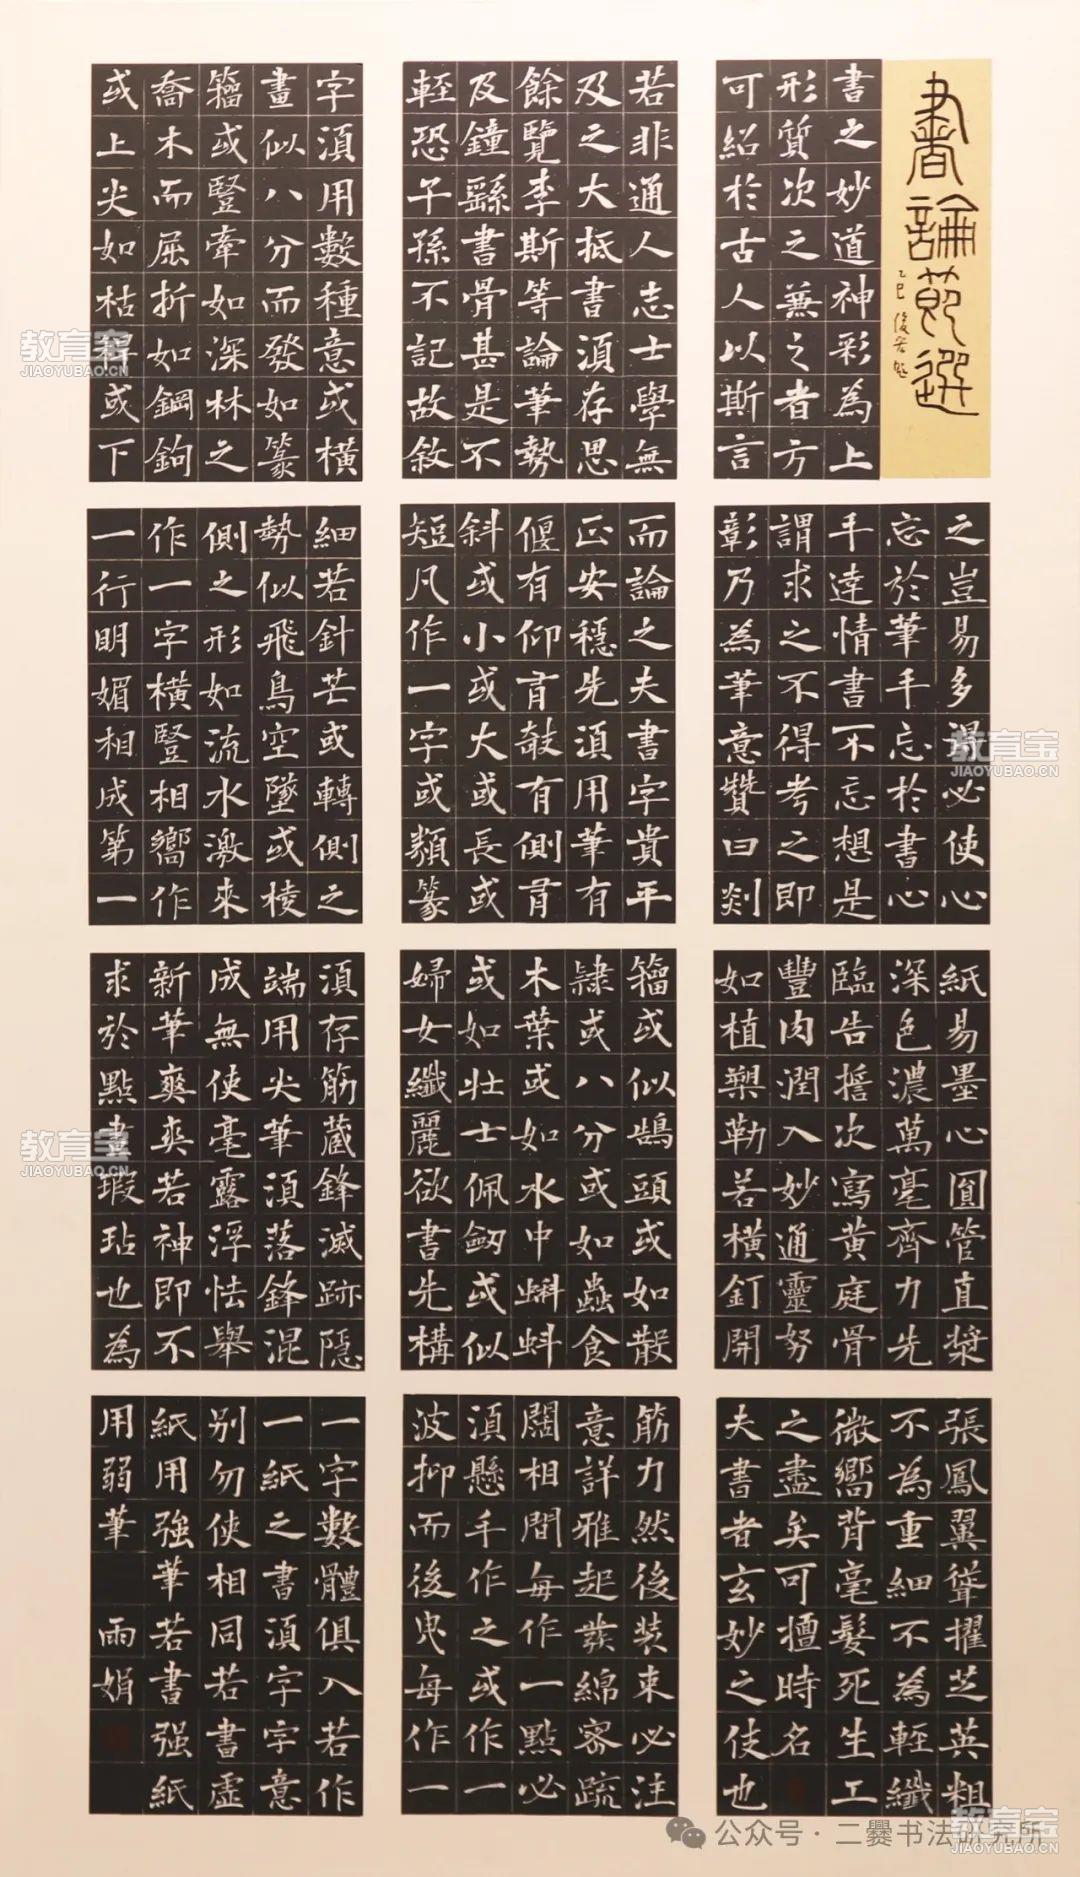 書論節選
乙巳
書之妙道神彩為上
形質次之兼之者方
可紹於古人以斯言
之豈易多得必使心
忘於筆手忘於書心
手達情書不忘想是
謂求之不得考之即
彰乃為筆意贊曰剡
紙易墨心圓管直漿
深色濃萬毫齊力先
臨告誓次寫黃庭骨
豐肉潤入妙通靈努
如植槊勒若橫釘開
張鳳翼聳擢芝英粗
不為重細不為輕纖
微嚮背毫髮死生工
之盡矣可擅時名
夫書者玄妙之伎也
若非通人志士學無
及之大抵書須存思
餘覽李斯等論筆勢
及鐘繇書骨甚是不
輕恐子孫不記故敘
而論之夫書字貴平
正安穩先須用筆有
偃有仰有敧有側有
斜或小或大或長或
短凡作一字或類篆
籀或似鵠頭或如散
隸或八分或如蟲食
木葉或如水中蝌蚪
或如壯士佩劒或似
婦女纖麗欲書先構
筋力然後裝束必注
意詳雅起發綿密疏
闊相間每作一點必
須懸手作之或作一
波抑而後曳每作一
字須用數種意或橫
畫似八分而發如篆
籀或豎牽如深林之
喬木而屈折如鋼鉤
或上尖如枯稈或下
細若針芒或轉側之
勢似飛鳥空墜或棱
側之形如流水激來
作一字橫豎相嚮作
一行明媚相成第一
須存筋藏鋒滅跡隱
端用尖筆須落鋒混
成無使毫露浮怯舉
新筆爽爽若神即不
求於點畫瑕玷也為
一字數體俱入若作
一紙之書須字字意
別勿使相同若書虛
紙用強筆若書强紙
用弱筆 雨娟
教育宝
JIAOYUBAO.CN
教育宝
JIAOYUBAO.CN
教育宝
JIAOYUBAO.CN
教育宝
JIAOYUBAO.CN
公众号·二爨书法研究所